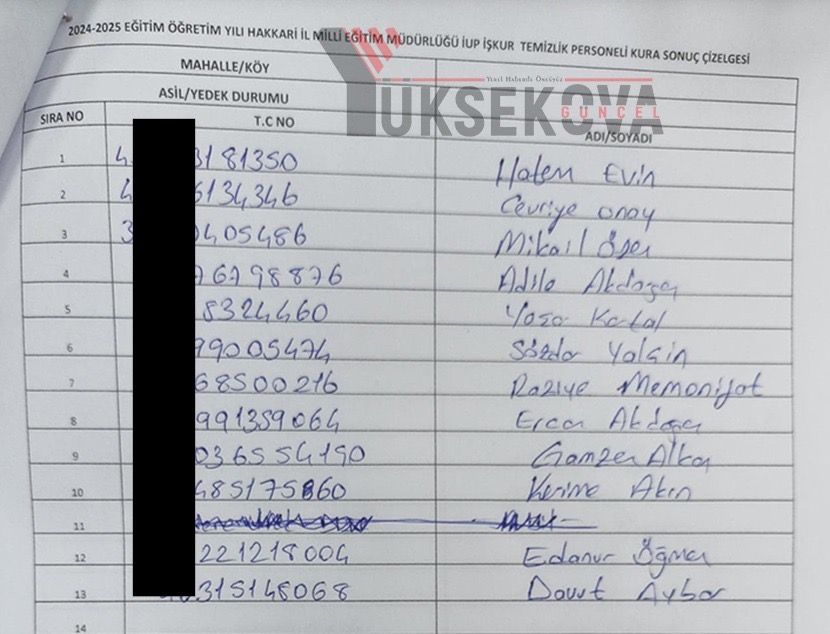 2024-2025 EĞİTİM ÖĞRETİM YILI HAKKARİ İL MİLLİ EĞİTİM MÜDÜRLÜĞÜ İUP İŞKUR TEMİZLİK PERSONELİ KURA SONUÇ ÇİZELGESİ
MAHALLE/KÖY
Yerel Haberde Öncüyüz
YÜKSEKOVA
GÜNCEL
ASİL/YEDEK DURUMU
SIRA NO T.C NO ADI/SOYADI
1 4 3181350 Hatem Evin
2 4 6134346 Cevriye onay
3 3 0405486 Mikail Özer
4 76798876 Adile Akdoğan
5 8324460 Kartal
6 99005474 Sözdar Yalçin
7 68500216 Raziye
8 991359064 Ercan Akdoğan
9 036554190 Gamzen Alkan
10 485175860 Kerime Akın
11
12 221218004 Edanur Öğmen
13 315148068 Davut Aybar
14